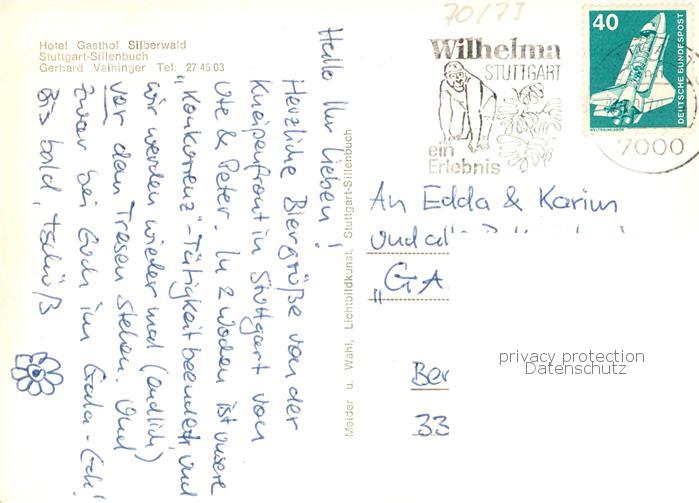 70/73
Hotel Gasthof Silberwald
Stuttgart-Sillenbuch
Gerhard Vaihinger Tel. 27 46 03
Wilhelma
STUTTGART
ein
Erlebnis
40
DEUTSCHE BUNDESPOST
WELTRAUMLABOR
7000
Hallo Ihr Lieben!
Herzliche Biergrüße von der
Kneipenfront in Stuttgart von
Ute & Peter. In 2 Wochen ist unsere
"Konkurrenz"-Tätigkeit beendet, und
wir werden wieder mal (endlich)
vor dem Tresen stehen. Und
zwar bei Euch im Gala-Eck!
Bis bald, tschüß
Meider u. Wahl, Lichtbildkunst, Stuttgart-Sillenbuch
An Edda & Karim
und all
"GA
Ber
33
privacy protection
Datenschutz